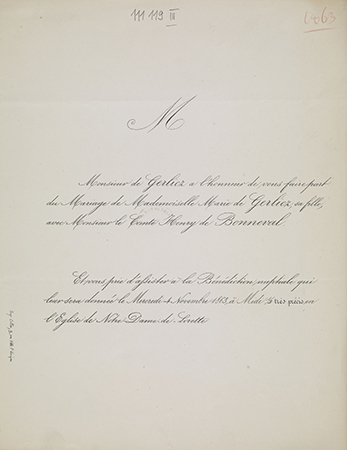 111 119 III
1863
M
Monsieur de Gerliez a l'honneur de vous faire part
du Mariage de Mademoiselle Marie de Gerliez, sa fille,
avec Monsieur le Comte Henry de Bonneval.
Et vous prie d'assister à la Bénédiction nuptiale qui
leur sera donnée le Mercredi 4 Novembre 1863, à Midi très précis, en
l'Eglise de Notre Dame de Lorette.